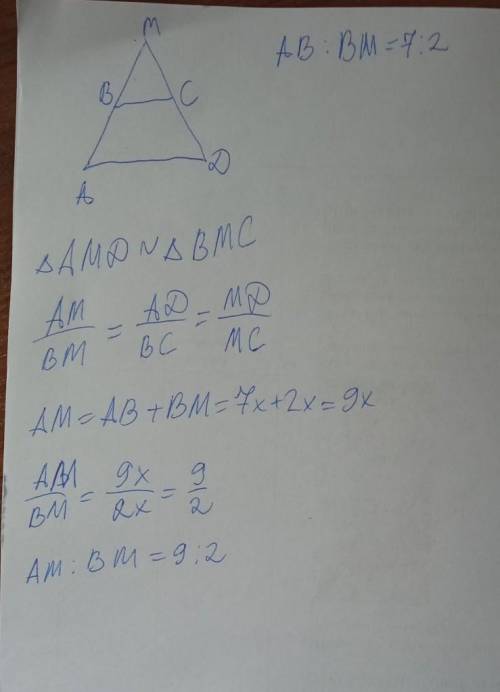 M
AB : BM = 7 : 2
B C
A D
△AMD ~ △BMC
AM/BM = AD/BC = MD/MC
AM = AB + BM = 7x + 2x = 9x
AM/BM = 9x/2x = 9/2
AM : BM = 9 : 2